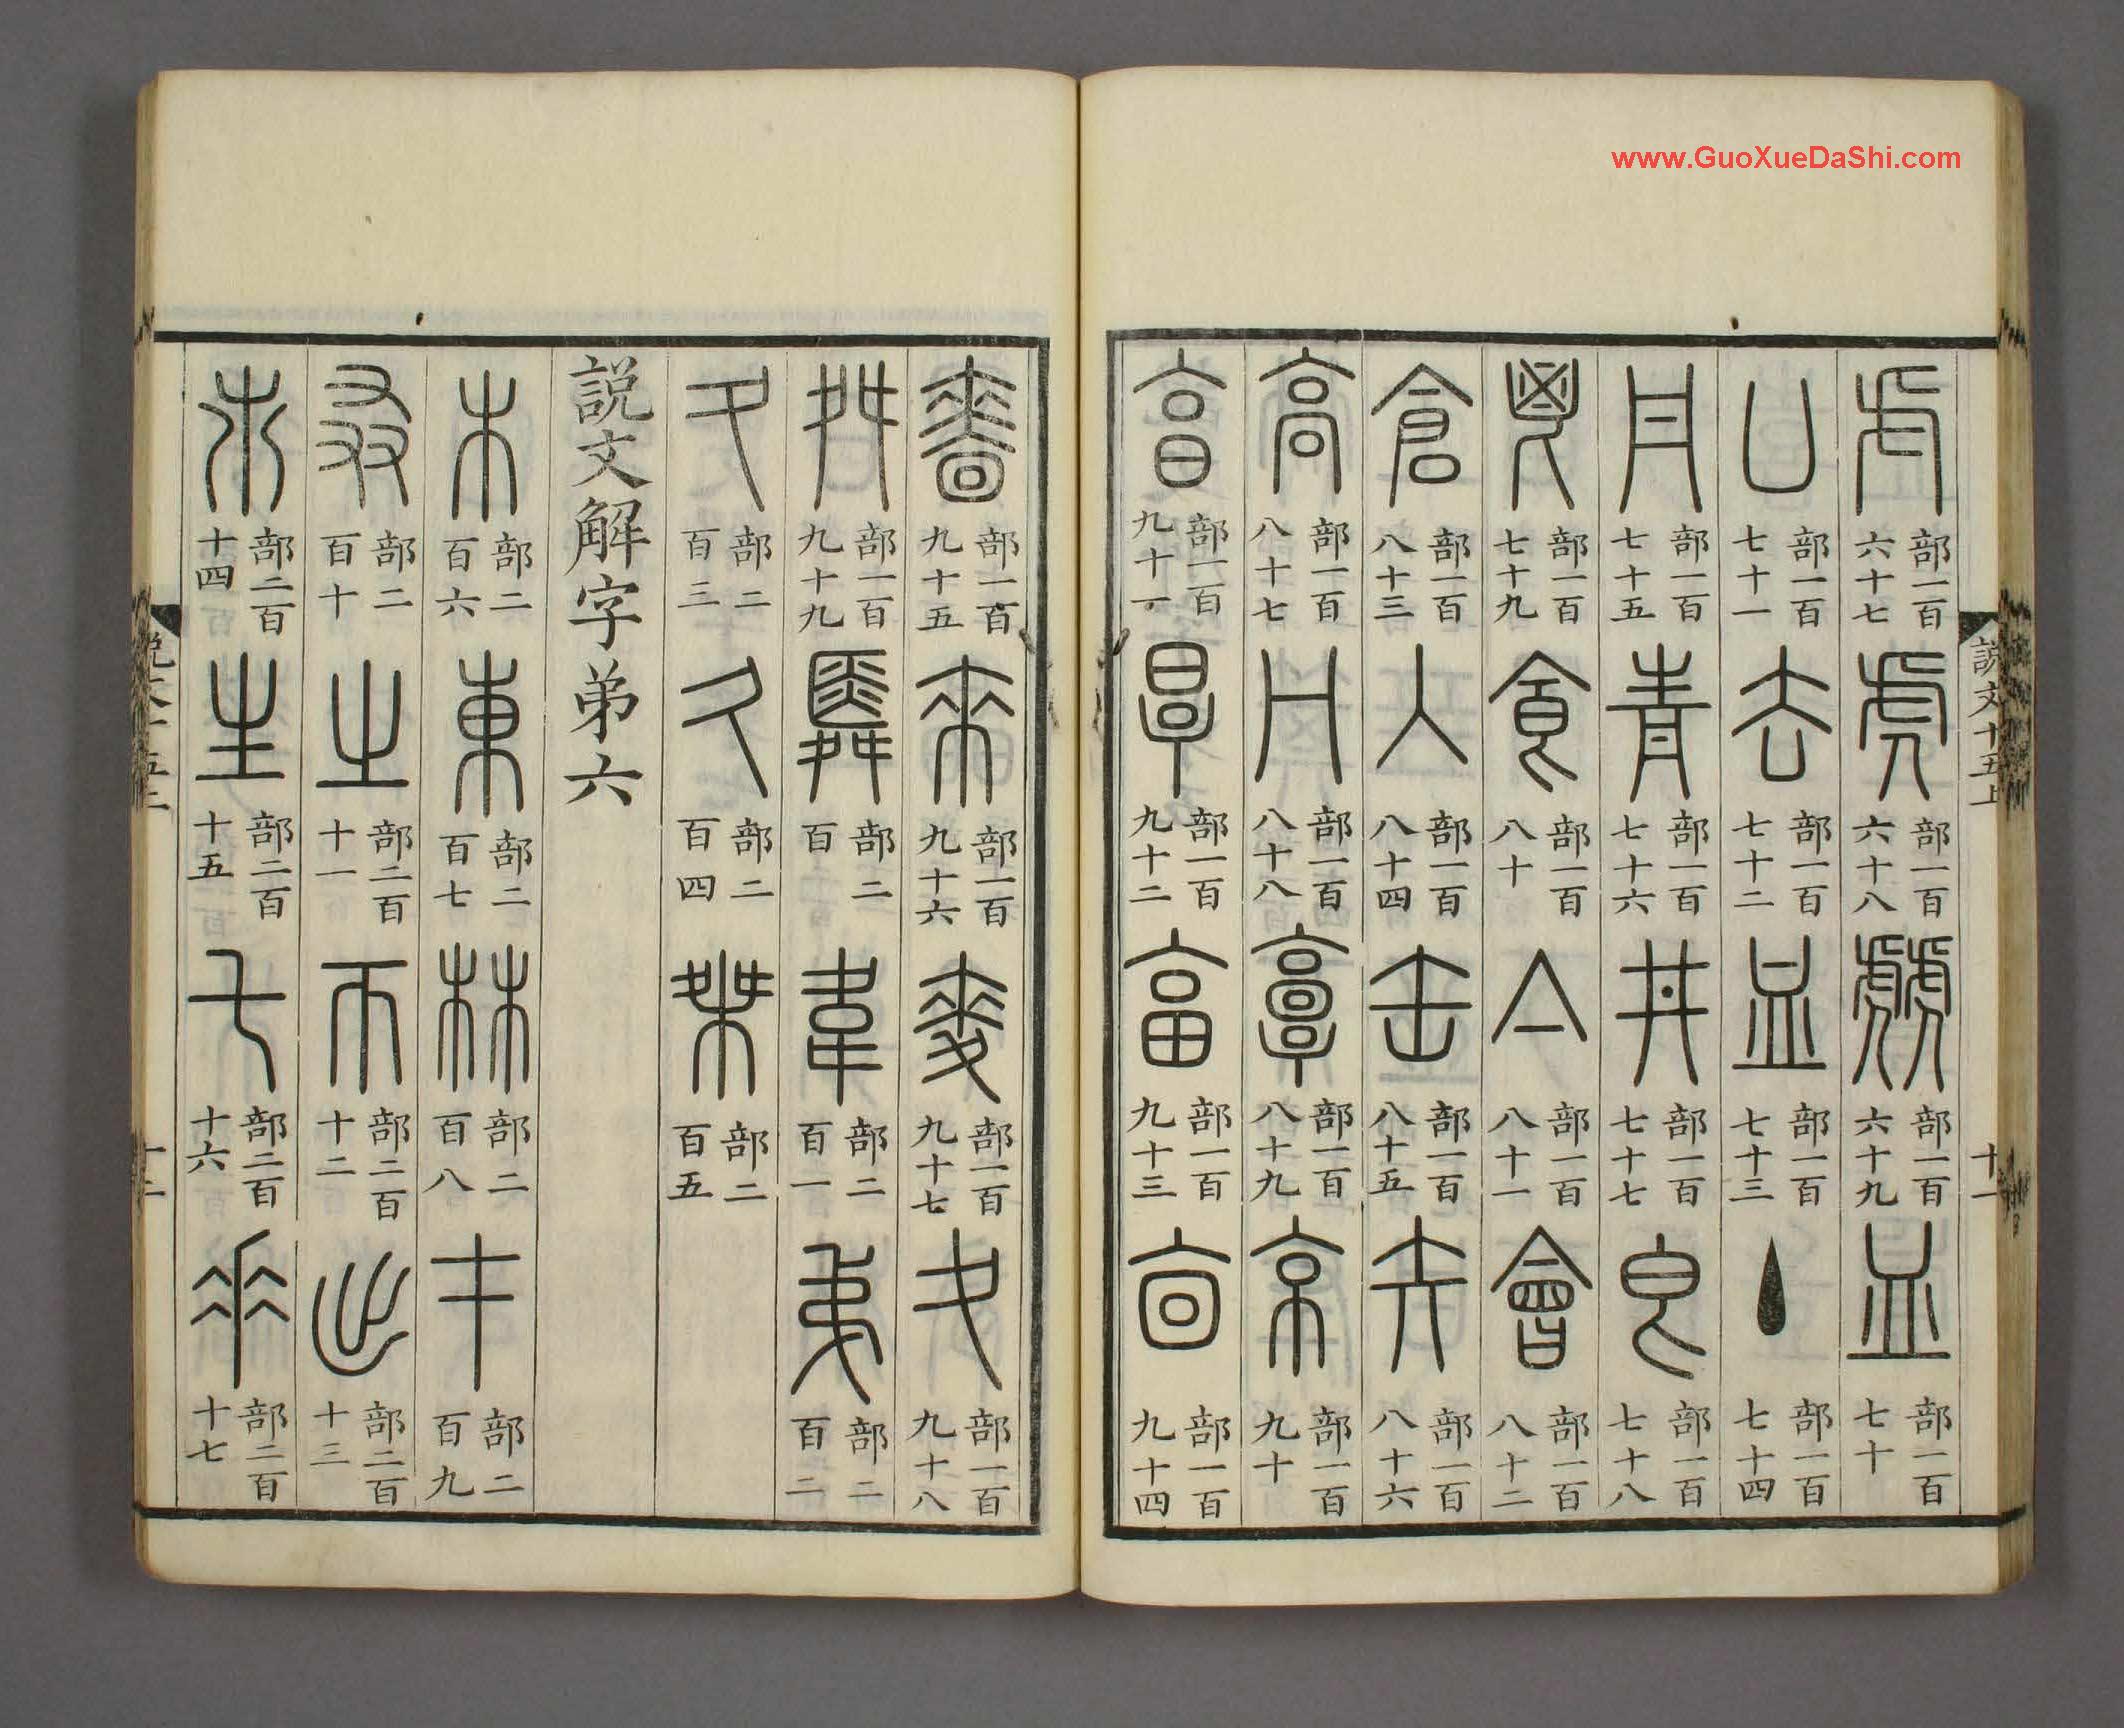 www.GuoXueDaShi.com
説文十五上 十一
虍 部一百六十七 虎 部一百六十八 虤 部一百六十九 皿 部一百七十
凵 部一百七十一 去 部一百七十二 血 部一百七十三 丶 部一百七十四
丹 部一百七十五 青 部一百七十六 井 部一百七十七 皀 部一百七十八
鬯 部一百七十九 食 部一百八十 亼 部一百八十一 會 部一百八十二
倉 部一百八十三 入 部一百八十四 缶 部一百八十五 矢 部一百八十六
高 部一百八十七 冂 部一百八十八 𩫖 部一百八十九 京 部一百九十
亯 部一百九十一 㫗 部一百九十二 畗 部一百九十三 㐭 部一百九十四
嗇 部一百九十五 來 部一百九十六 麥 部一百九十七 夊 部一百九十八
舛 部一百九十九 䑞 部二百 韋 部二百一 弟 部二百二
夂 部二百三 久 部二百四 桀 部二百五
説文解字弟六
木 部二百六 東 部二百七 林 部二百八 才 部二百九
叒 部二百十 之 部二百十一 帀 部二百十二 出 部二百十三
𣎵 部二百十四 生 部二百十五 乇 部二百十六 𠂹 部二百十七